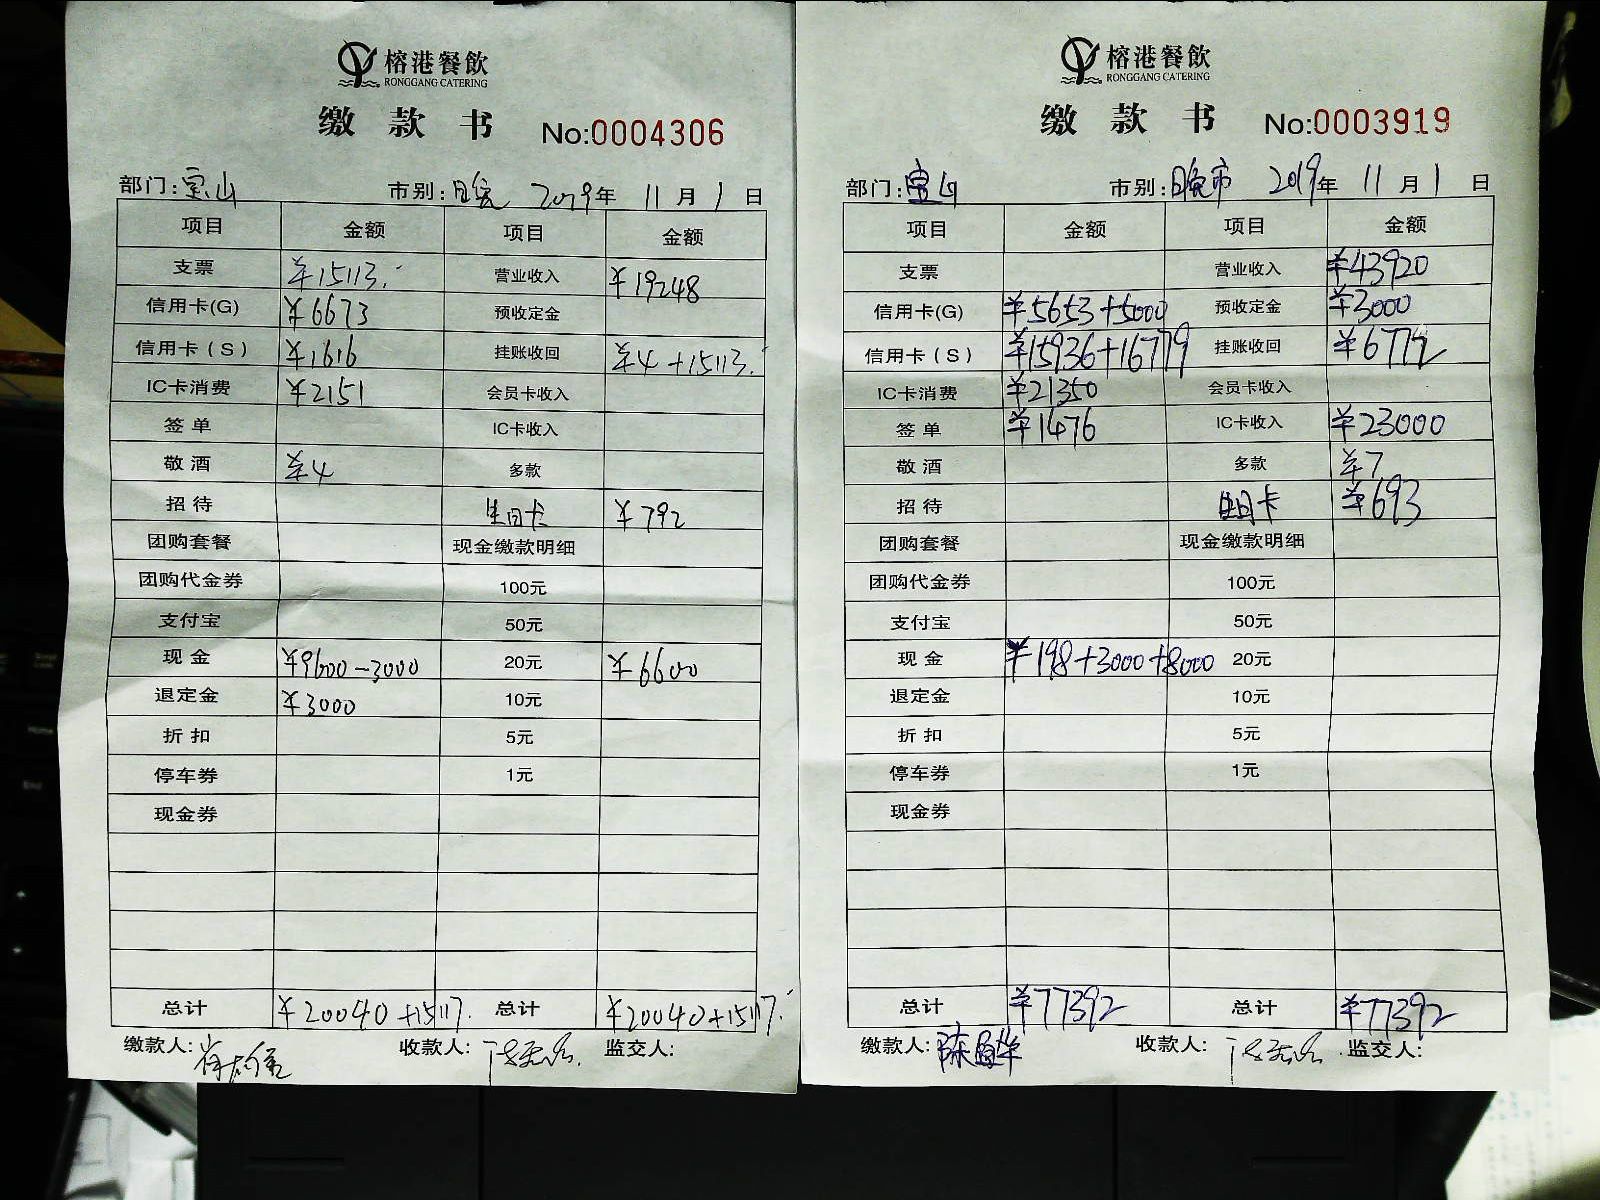 榕港餐飲
RONGGANG CATERING
缴款书 No:0004306
部门:宝山 市别:日晚 2019年 11月 1日
项目 金额 项目 金额
支票 ¥15113. 营业收入 ¥19248
信用卡(G) ¥6673 预收定金
信用卡(S) ¥1616 挂账收回 ¥4+15113.
IC卡消费 ¥2151 会员卡收入
签单 IC卡收入
敬酒 ¥4 多款
招待 生日卡 ¥792
团购套餐 现金缴款明细
团购代金券 100元
支付宝 50元
现金 ¥9600-3000 20元 ¥6600
退定金 ¥3000 10元
折扣 5元
停车券 1元
现金券
总计 ¥20040+15117. 总计 ¥20040+15117.
缴款人: 收款人: 监交人:
榕港餐飲
RONGGANG CATERING
缴款书 No:0003919
部门:宝山 市别:日晚市 2019年 11月 1日
项目 金额 项目 金额
支票 营业收入 ¥43920
信用卡(G) ¥5653+5000 预收定金 ¥3000
信用卡(S) ¥15936+16779 挂账收回 ¥6772
IC卡消费 ¥21350 会员卡收入
签单 ¥1476 IC卡收入 ¥23000
敬酒 多款 ¥7
招待 生日卡 ¥693
团购套餐 现金缴款明细
团购代金券 100元
支付宝 50元
现金 ¥198+3000+8000 20元
退定金 10元
折扣 5元
停车券 1元
现金券
总计 ¥77392 总计 ¥77392
缴款人: 收款人: 监交人: